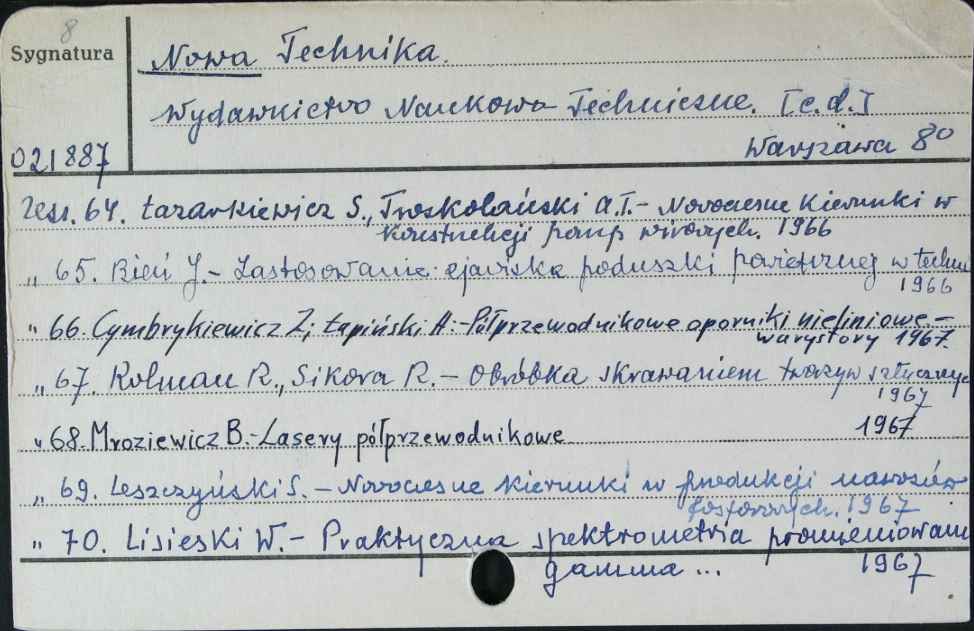 8
Sygnatura
Nowa Technika.
Wydawnictwo Naukowo Techniczne. [c.d.]
Warszawa 8°
021887
Zesz. 64. Łazarkiewicz S., Troskolański A.T. - Nowoczesne kierunki w
konstrukcji pomp wirowych. 1966
„ 65. Bień J. - Zastosowanie zjawiska poduszki powietrznej w techn
1966
„ 66. Cymbrykiewicz Z; Łapiński A: - Półprzewodnikowe oporniki nieliniowe -
warystory 1967.
„ 67. Kolman R., Sikora R. - Obróbka skrawaniem tworzyw sztucznych
1967
„ 68. Mroziewicz B. - Lasery półprzewodnikowe 1967
„ 69. Leszczyński S. - Nowoczesne kierunki w produkcji nawozów
fosforowych. 1967
„ 70. Lisieski W. - Praktyczna spektrometria promieniowani
gamma ... 1967